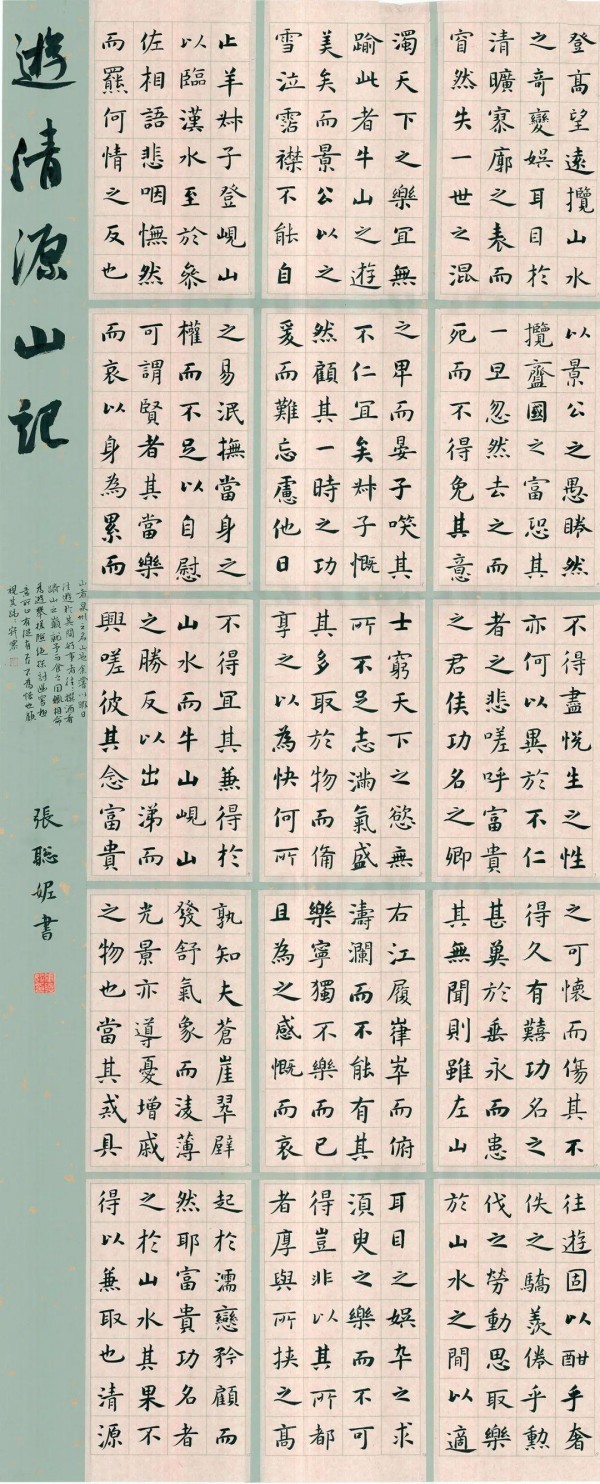 登高望遠攬山水
之奇變娛耳目於
清曠寥廓之表而
窅然失一世之混
濁天下之樂宜無
踰此者牛山之遊
美矣而景公以之
雪泣霑襟不能自
止羊叔子登峴山
以臨漢水至於參
佐相語悲咽憮然
而罷何情之反也
以景公之愚勝然
攬齊國之富恐其
一旦忽然去之而
死而不得免其意
之卑而晏子笑其
不仁宜矣叔子慨
然顧其一時之功
爰而難忘慮他日
之易泯撫當身之
權而不足以自慰
可謂賢者其當樂
而哀以身為累而
不得盡悅生之性
亦何以異於不仁
者之悲嗟呼富貴
之君侯功名之卿
士窮天下之慾無
所不足志滿氣盛
其多取於物而備
享之以為快何所
不得宜其兼得於
山水而牛山峴山
之勝反以出涕而
興嗟彼其念富貴
之可懷而傷其不
得久有囏功名之
甚冀於垂永而患
其無聞則雖左山
右江履嵂崒而俯
濤瀾而不能有其
樂寧獨不樂而已
且為之感慨而哀
孰知夫蒼崖翠壁
發舒氣象而凌薄
光景亦導憂增戚
之物也當其或具
往遊固以酣乎奢
佚之驕羨倦乎勳
伐之勞動思取樂
於山水之間以適
耳目之娛卒之求
須臾之樂而不可
得豈非以其所都
者厚與所挾之高
起於濡戀矜顧而
然耶富貴功名者
之於山水其果不
得以兼取也清源
遊清源山記
山者泉州之名山也余嘗以暇日
往遊於其間好事者往攜酒肴
張聰妮書